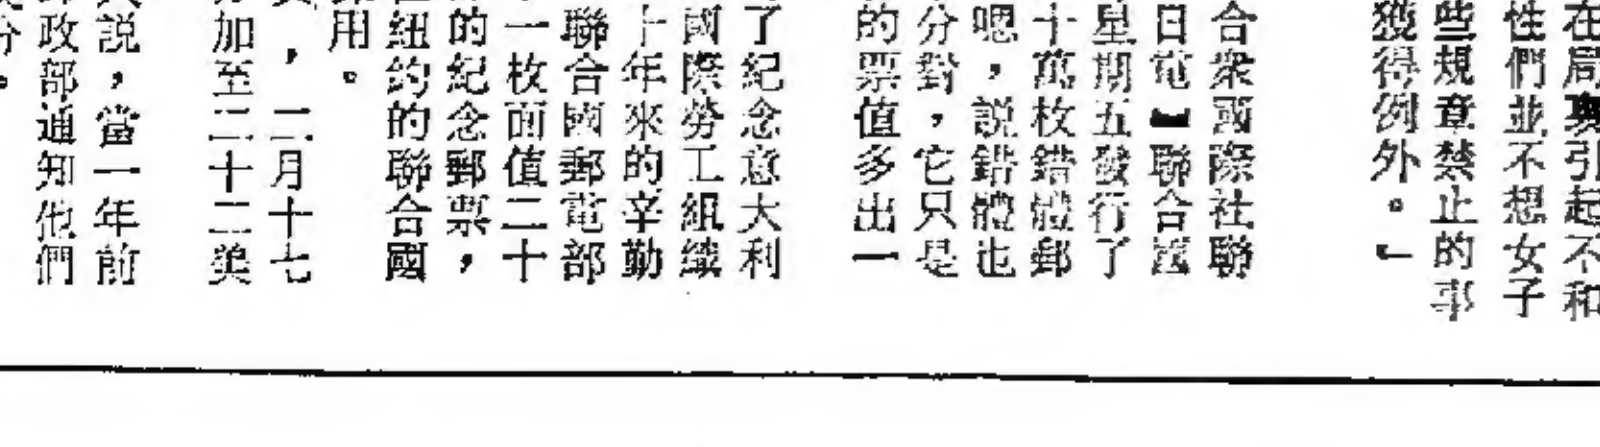 在局引起不和
性們並不想女子
些規章禁止的事
獲得例外。」
合衆國際社聯
日電】聯合國
星期五發行了
十萬枚錯體郵
嗯，說錯體也
分對，它只是
的票值多出一
了紀念意大利
國際勞工組織
十年來的辛勤
聯合國郵電部
一枚面值二十
的紀念郵票，
紐約的聯合國
用。
，二月十七
加至二十二美
說，當一年前
政部通知他們
分。